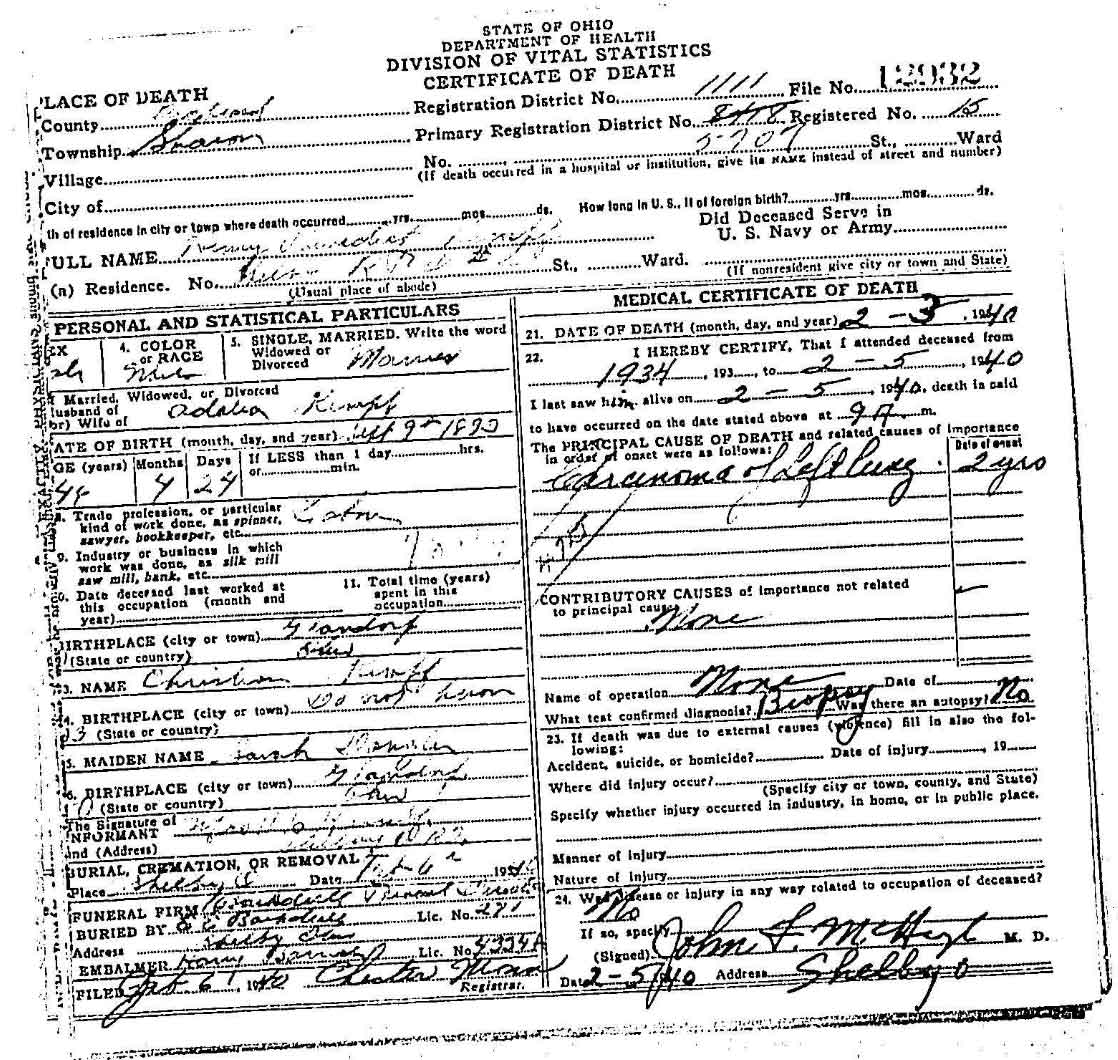 STATE OF OHIO
DEPARTMENT OF HEALTH
DIVISION OF VITAL STATISTICS
CERTIFICATE OF DEATH
PLACE OF DEATH
County
Registration District No. 1111 File No. 12932
Township Sharon
Primary Registration District No. 8478 Registered No. 15
5707
Village
No. St., Ward
(If death occurred in a hospital or institution, give its NAME instead of street and number)
City of
th of residence in city or town where death occurred yrs. mos. ds. How long in U. S., if of foreign birth? yrs. mos. ds.
Did Deceased Serve in
U. S. Navy or Army
FULL NAME Henry
(a) Residence. No. St., Ward.
(Usual place of abode) (If nonresident give city or town and State)
PERSONAL AND STATISTICAL PARTICULARS
EX
4. COLOR or RACE
5. SINGLE, MARRIED. Write the word
Widowed or
Divorced Married
Married, Widowed, or Divorced
usband of
or) Wife of Adalia Kempf
ATE OF BIRTH (month, day, and year) Sept 9th
GE (years) Months Days If LESS than 1 day hrs.
or min.
4 24
8. Trade profession, or particular
kind of work done, as spinner,
sawyer, bookkeeper, etc. Labor
9. Industry or business in which
work was done, as silk mill
saw mill, bank, etc.
0. Date deceased last worked at
this occupation (month and
year)
11. Total time (years)
spent in this
occupation
BIRTHPLACE (city or town) Glandorf
(State or country) Ohio
3. NAME Christian Kempf
4. BIRTHPLACE (city or town) Do not know
(State or country)
5. MAIDEN NAME Sarah
6. BIRTHPLACE (city or town) Glandorf
(State or country) Ohio
The Signature of
INFORMANT
and (Address)
BURIAL, CREMATION, OR REMOVAL
Place Shelby O Date Feb 6 1940
FUNERAL FIRM
BURIED BY Lic. No. 271
Address Shelby Ohio
EMBALMER Lic. No. 4334A
FILED Feb 6, 1940 Chester
Registrar.
MEDICAL CERTIFICATE OF DEATH
21. DATE OF DEATH (month, day, and year) 2 - 5, 1940
22. I HEREBY CERTIFY, That I attended deceased from
1934, 193 , to 2 - 5, 1940
I last saw him alive on 2 - 5, 1940, death is said
to have occurred on the date stated above at 9 A. m.
The PRINCIPAL CAUSE OF DEATH and related causes of importance
in order of onset were as follows: Date of onset
Carcinoma of Left lung. 2 yrs
CONTRIBUTORY CAUSES of importance not related
to principal cause:
None
Name of operation None Date of
What test confirmed diagnosis? Biopsy Was there an autopsy? No
23. If death was due to external causes (violence) fill in also the fol-
lowing:
Accident, suicide, or homicide? Date of injury , 19
Where did injury occur?
(Specify city or town, county, and State)
Specify whether injury occurred in industry, in home, or in public place.
Manner of Injury
Nature of Injury
24. Was disease or injury in any way related to occupation of deceased?
No
If so, specify
(Signed) John F. McHugh M. D.
Date 2-5/40 Address Shelby O